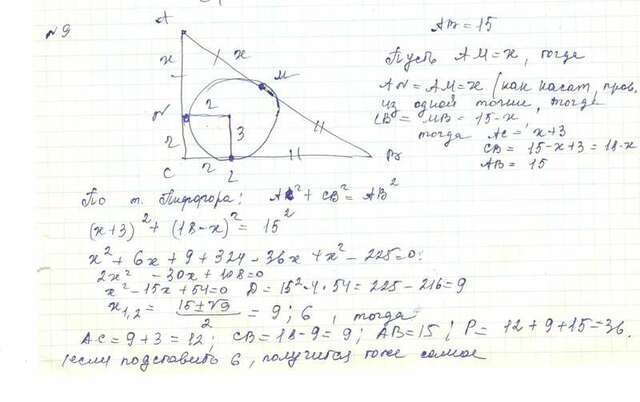 №9
A
AB = 15
Пусть AM = x, тогда
x
x
M
AN = AM = x (как касат, пров.
из одной точки, тогда
N
2
3
LB = MB = 15-x,
тогда AC = x+3
CB = 15-x+3 = 18-x
AB = 15
r
r
C
L
B
По т. Пифагора: AC² + CB² = AB²
(x+3)² + (18-x)² = 15²
x² + 6x + 9 + 324 - 36x + x² - 225 = 0
2x² - 30x + 108 = 0
x² - 15x + 54 = 0 D = 15² - 4·54 = 225 - 216 = 9
x₁,₂ = (15±√9)/2 = 9; 6, тогда
AC = 9+3 = 12; CB = 18-9 = 9; AB = 15; P = 12+9+15 = 36.
если подставить 6, получится тоже самое